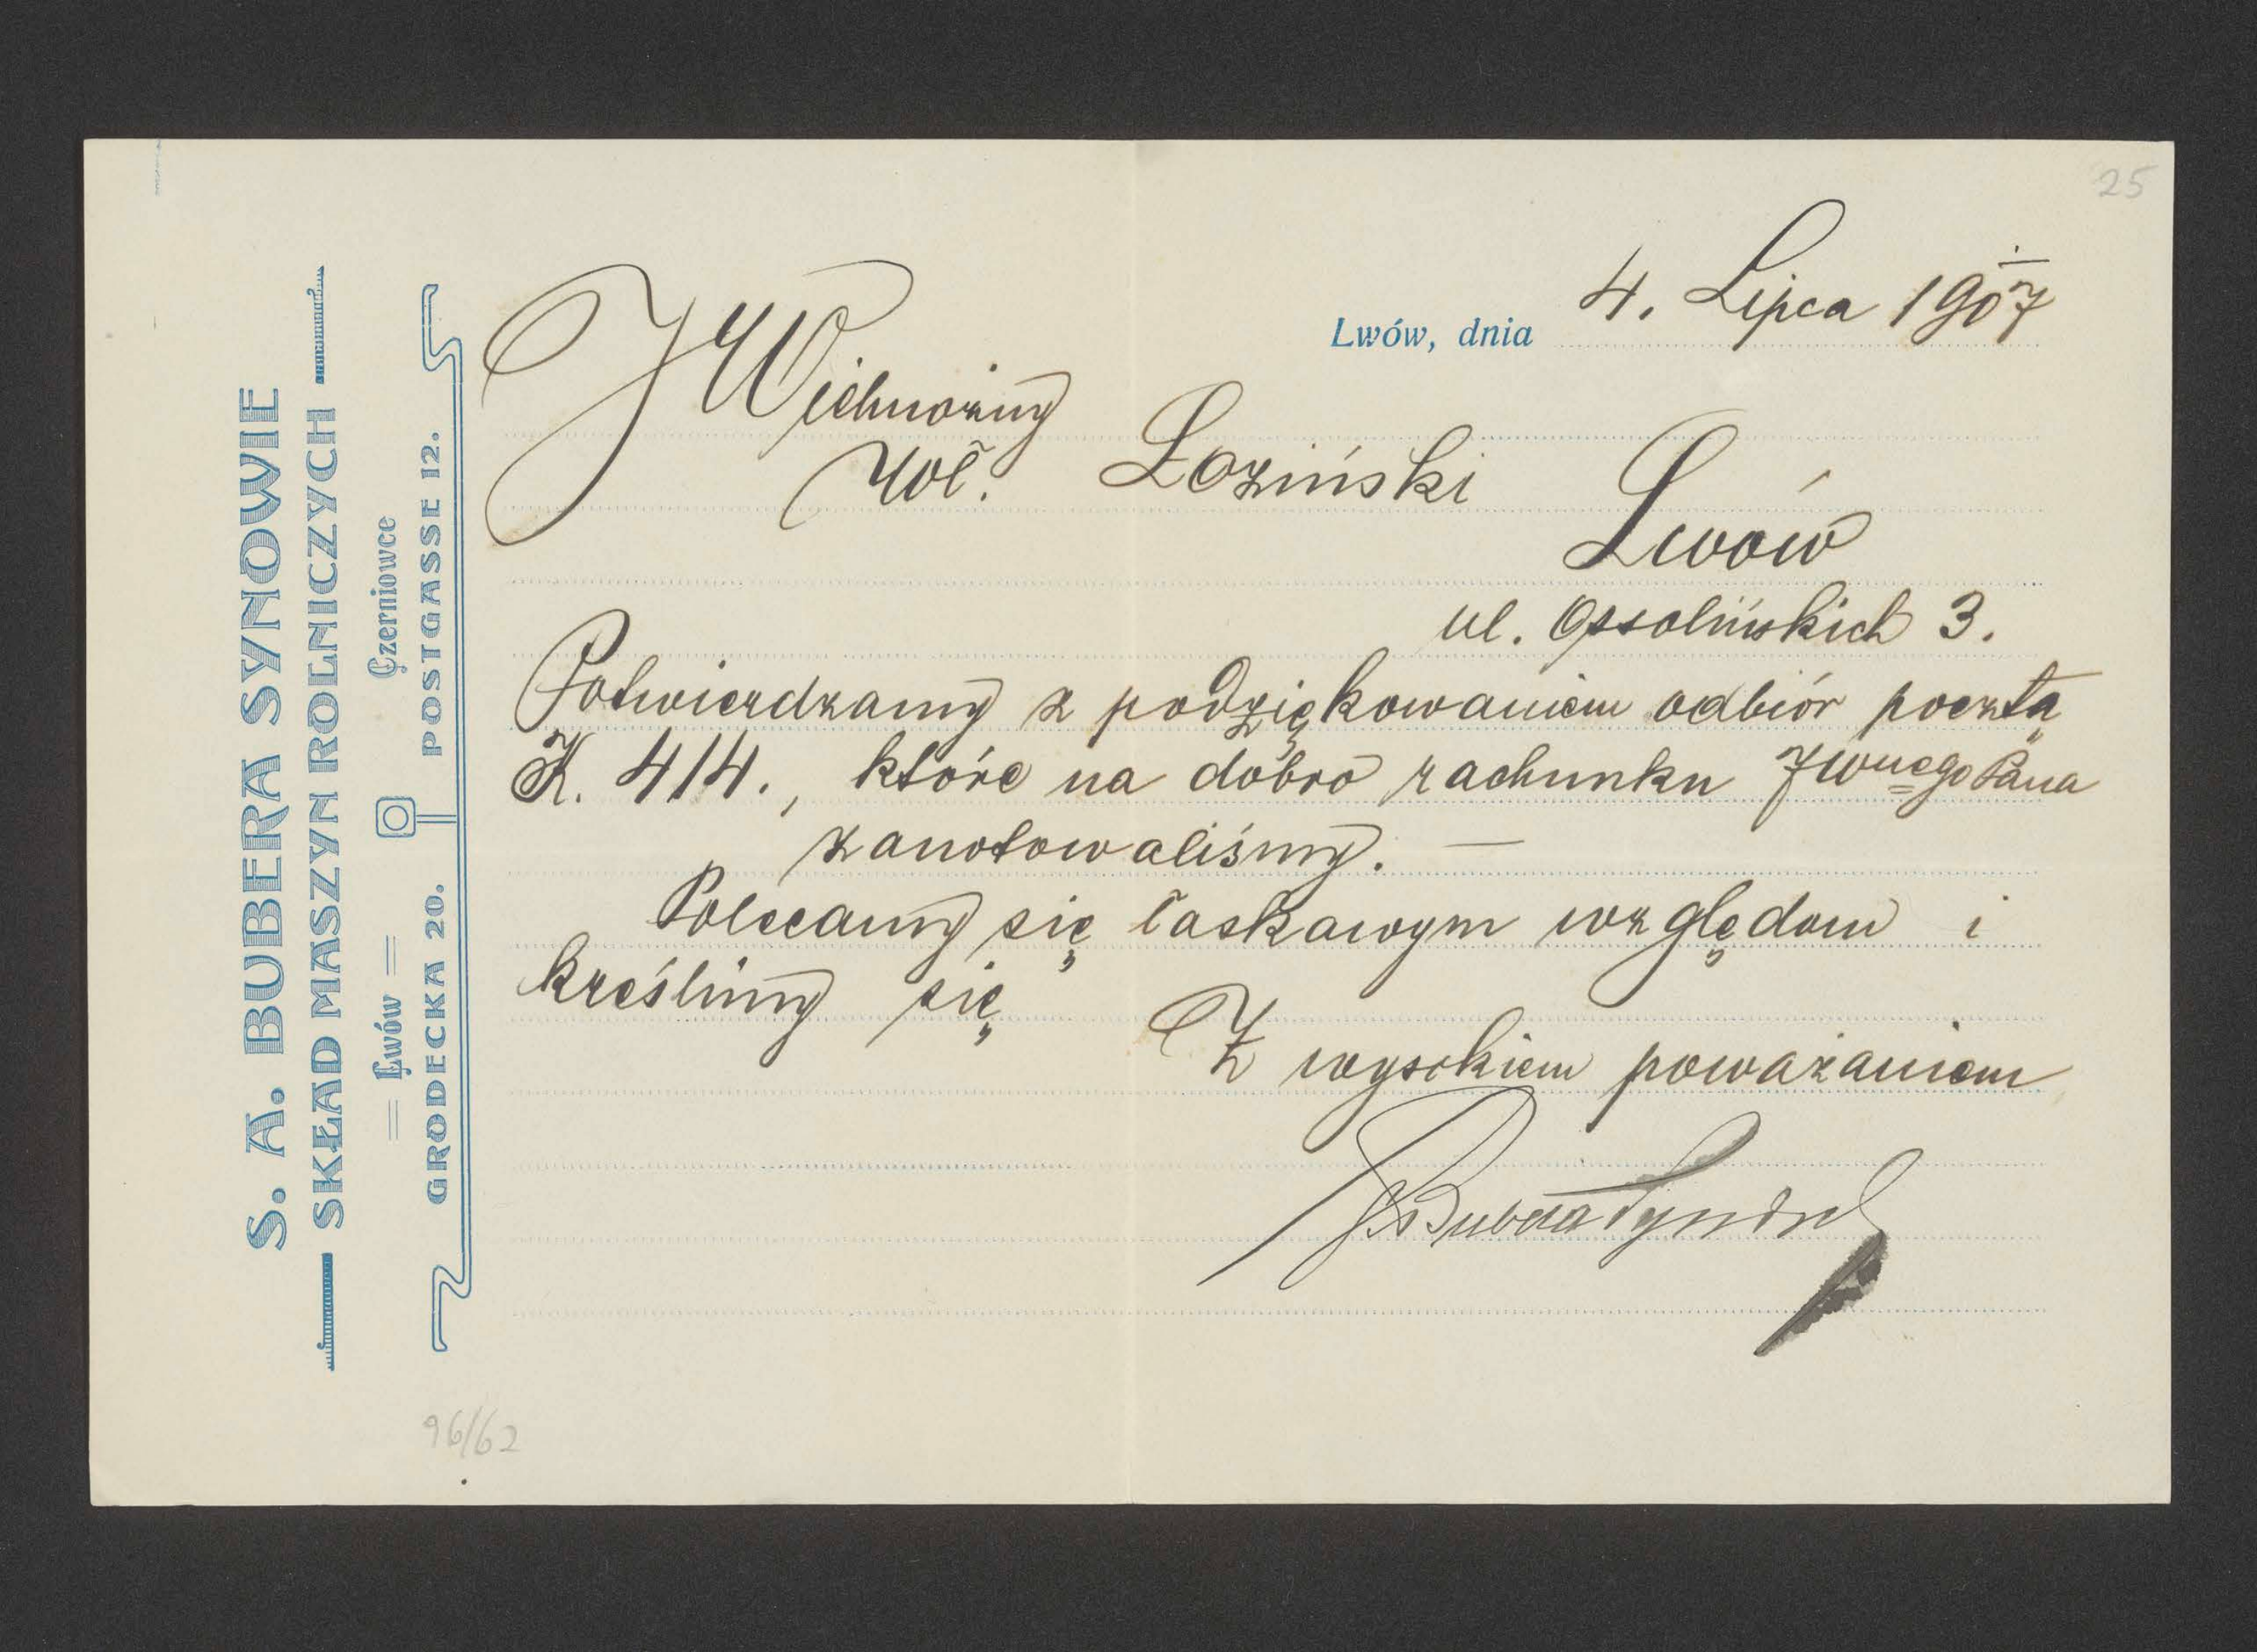 25
S. A. BUBERA SYNOWIE
SKŁAD MASZYN ROLNICZYCH
Lwów
GRODECKA 20.
Czerniowce
POSTGASSE 12.
Lwów, dnia 4. Lipca 1907
JWielmożny
Wł. Łoziński
Lwów
ul. Ossolińskich 3.
Potwierdzamy z podziękowaniem odbiór pocztą
K. 414., które na dobro rachunku JWnego Pana
zanotowaliśmy. —
Polecamy się łaskawym względom i
kreślimy się
Z wysokiem poważaniem
SABubera Synowie
96/62